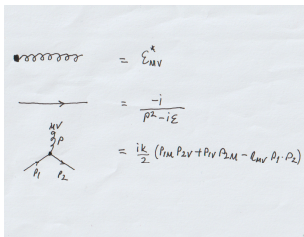 = ε*μν
= -i / p² - iε
μν
p
p1 p2
= ik/2 (p1μ p2ν + p1ν p2μ - ημν p1 · p2)